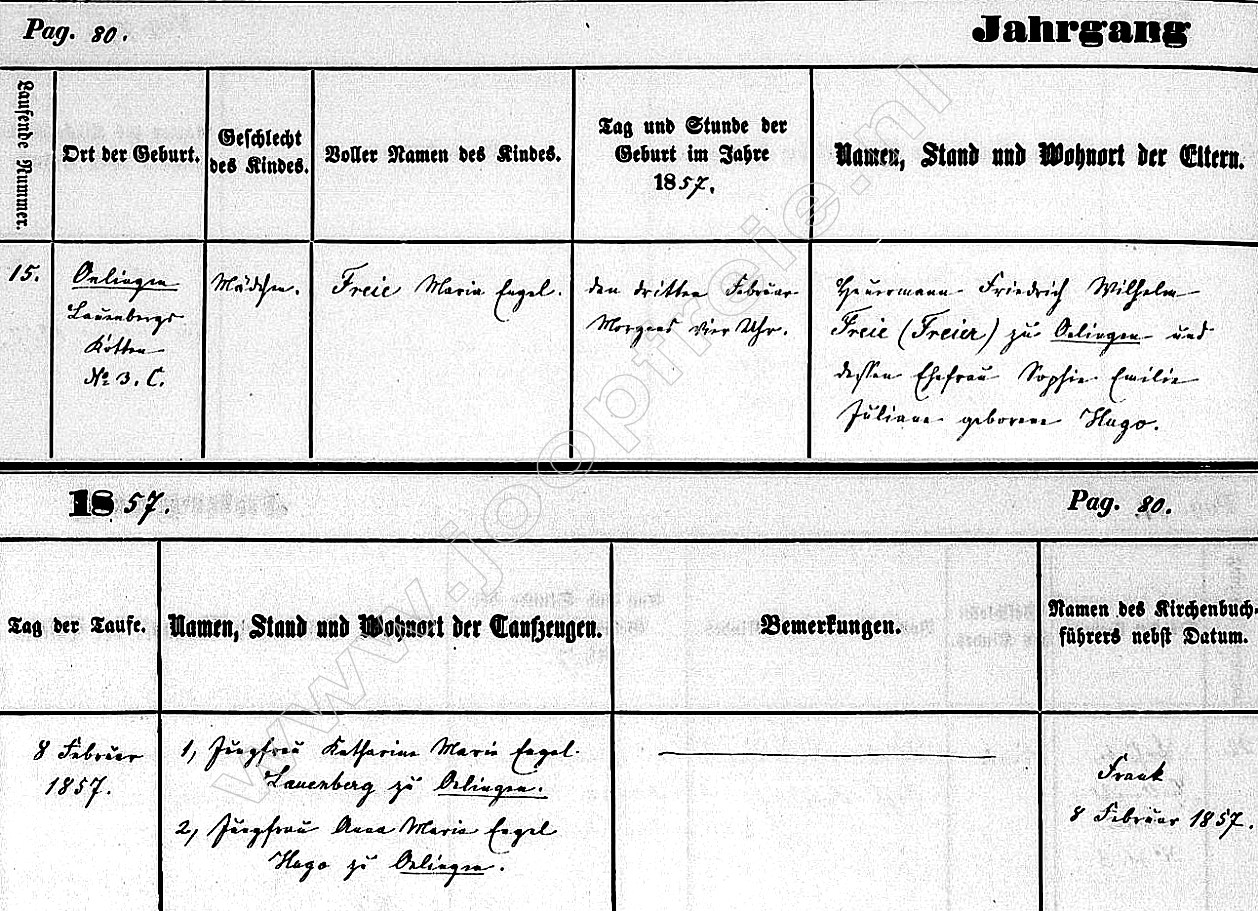 Pag. 80.
Jahrgang
Laufende Nummer.
Ort der Geburt.
Geschlecht
des Kindes.
Voller Namen des Kindes.
Tag und Stunde der
Geburt im Jahre
1857.
Namen, Stand und Wohnort der Eltern.
15.
Oelingen
Lauenbergs
Kotten
No 3. C.
Mädchen.
Freie Maria Engel.
den dritten Februar
Morgens vier Uhr.
Heuermann Friedrich Wilhelm
Freie (Freier) zu Oelingen und
dessen Ehefrau Sophie Emilie
Juliane geborene Hugo.
1857.
Pag. 80.
Tag der Taufe.
Namen, Stand und Wohnort der Taufzeugen.
Bemerkungen.
Namen des Kirchenbuch-
führers nebst Datum.
8 Februar
1857.
1, Jungfrau Katharine Marie Engel
Lauenberg zu Oelingen.
2, Jungfrau Anna Marie Engel
Hugo zu Oelingen.
Frank
8 Februar 1857.
www.joopfreie.nl